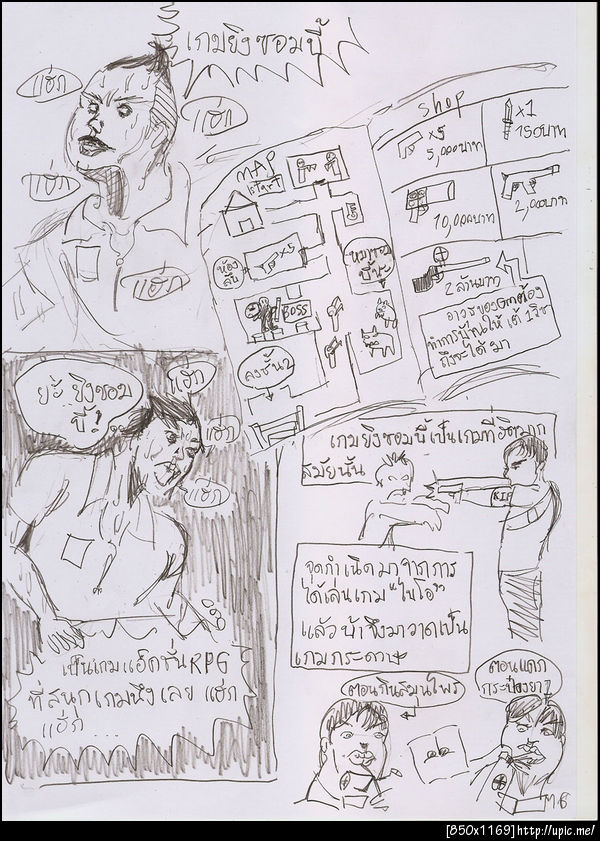 เกมยิงซอมบี้
แฮ่ก
แฮ่ก
แฮ่ก
แฮ่ก
MAP
start
ห้อง
ลับ
x5
BOSS
ลงชั้น2
shop
x5
5,000บาท
x1
150บาท
10,000บาท
2,000บาท
2 ล้านบาท
อาวุธของGmต้อง
ถึงจะได้มา
ยะ ยิงซอม
บี้!
แฮ่ก
แฮ่ก
แฮ่ก
เป็นเกมแอ็คชั่นRPG
ที่สนุกเกมนึงเลย แฮ่ก
แฮ่ก ...
เกมยิงซอมบี้เป็นเกมที่ฮิตมาก
สมัยนั้น
จุดกำเนิดมาจากการ
ได้เล่นเกม "ไบโอ"
แล้วบ้าจึงมาวาดเป็น
เกมกระดาษ
ตอนกินสมุนไพร
ตอนแดก
กระป๋องยา
[850x1169]http://upic.me/